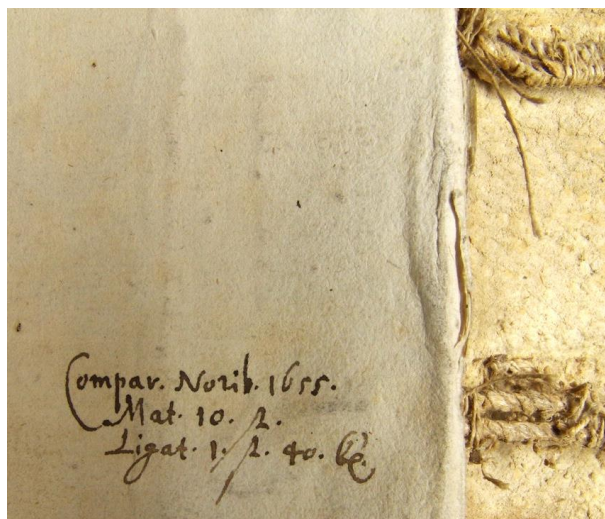 Compar. Norib. 1655.
Mat. 10. fl.
Ligat. 1. fl. 40.